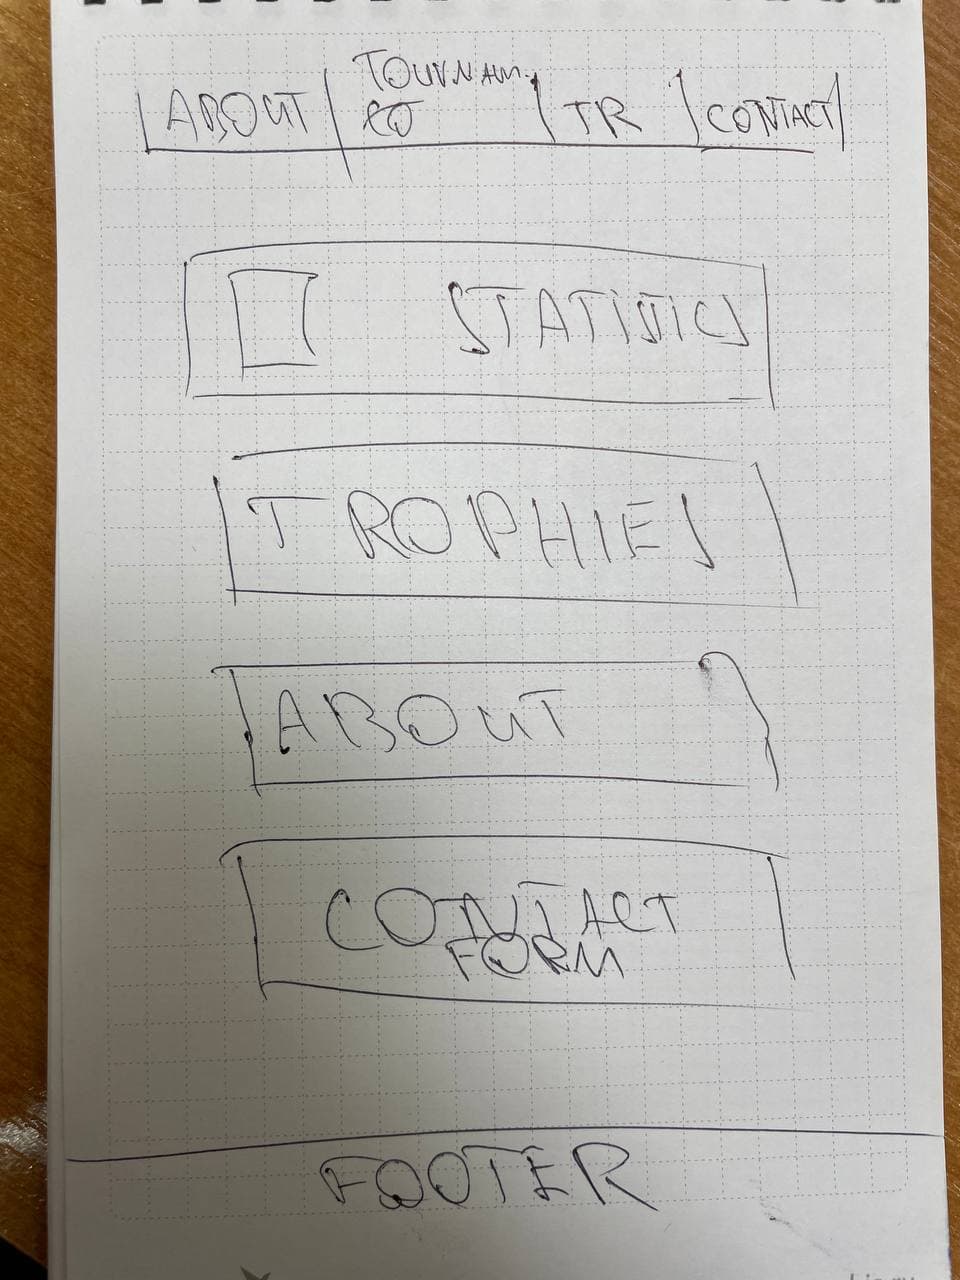 ABOUT TOURNAM. TR CONTACT
STATISTICS
TROPHIES
ABOUT
CONTACT
FORM
FOOTER